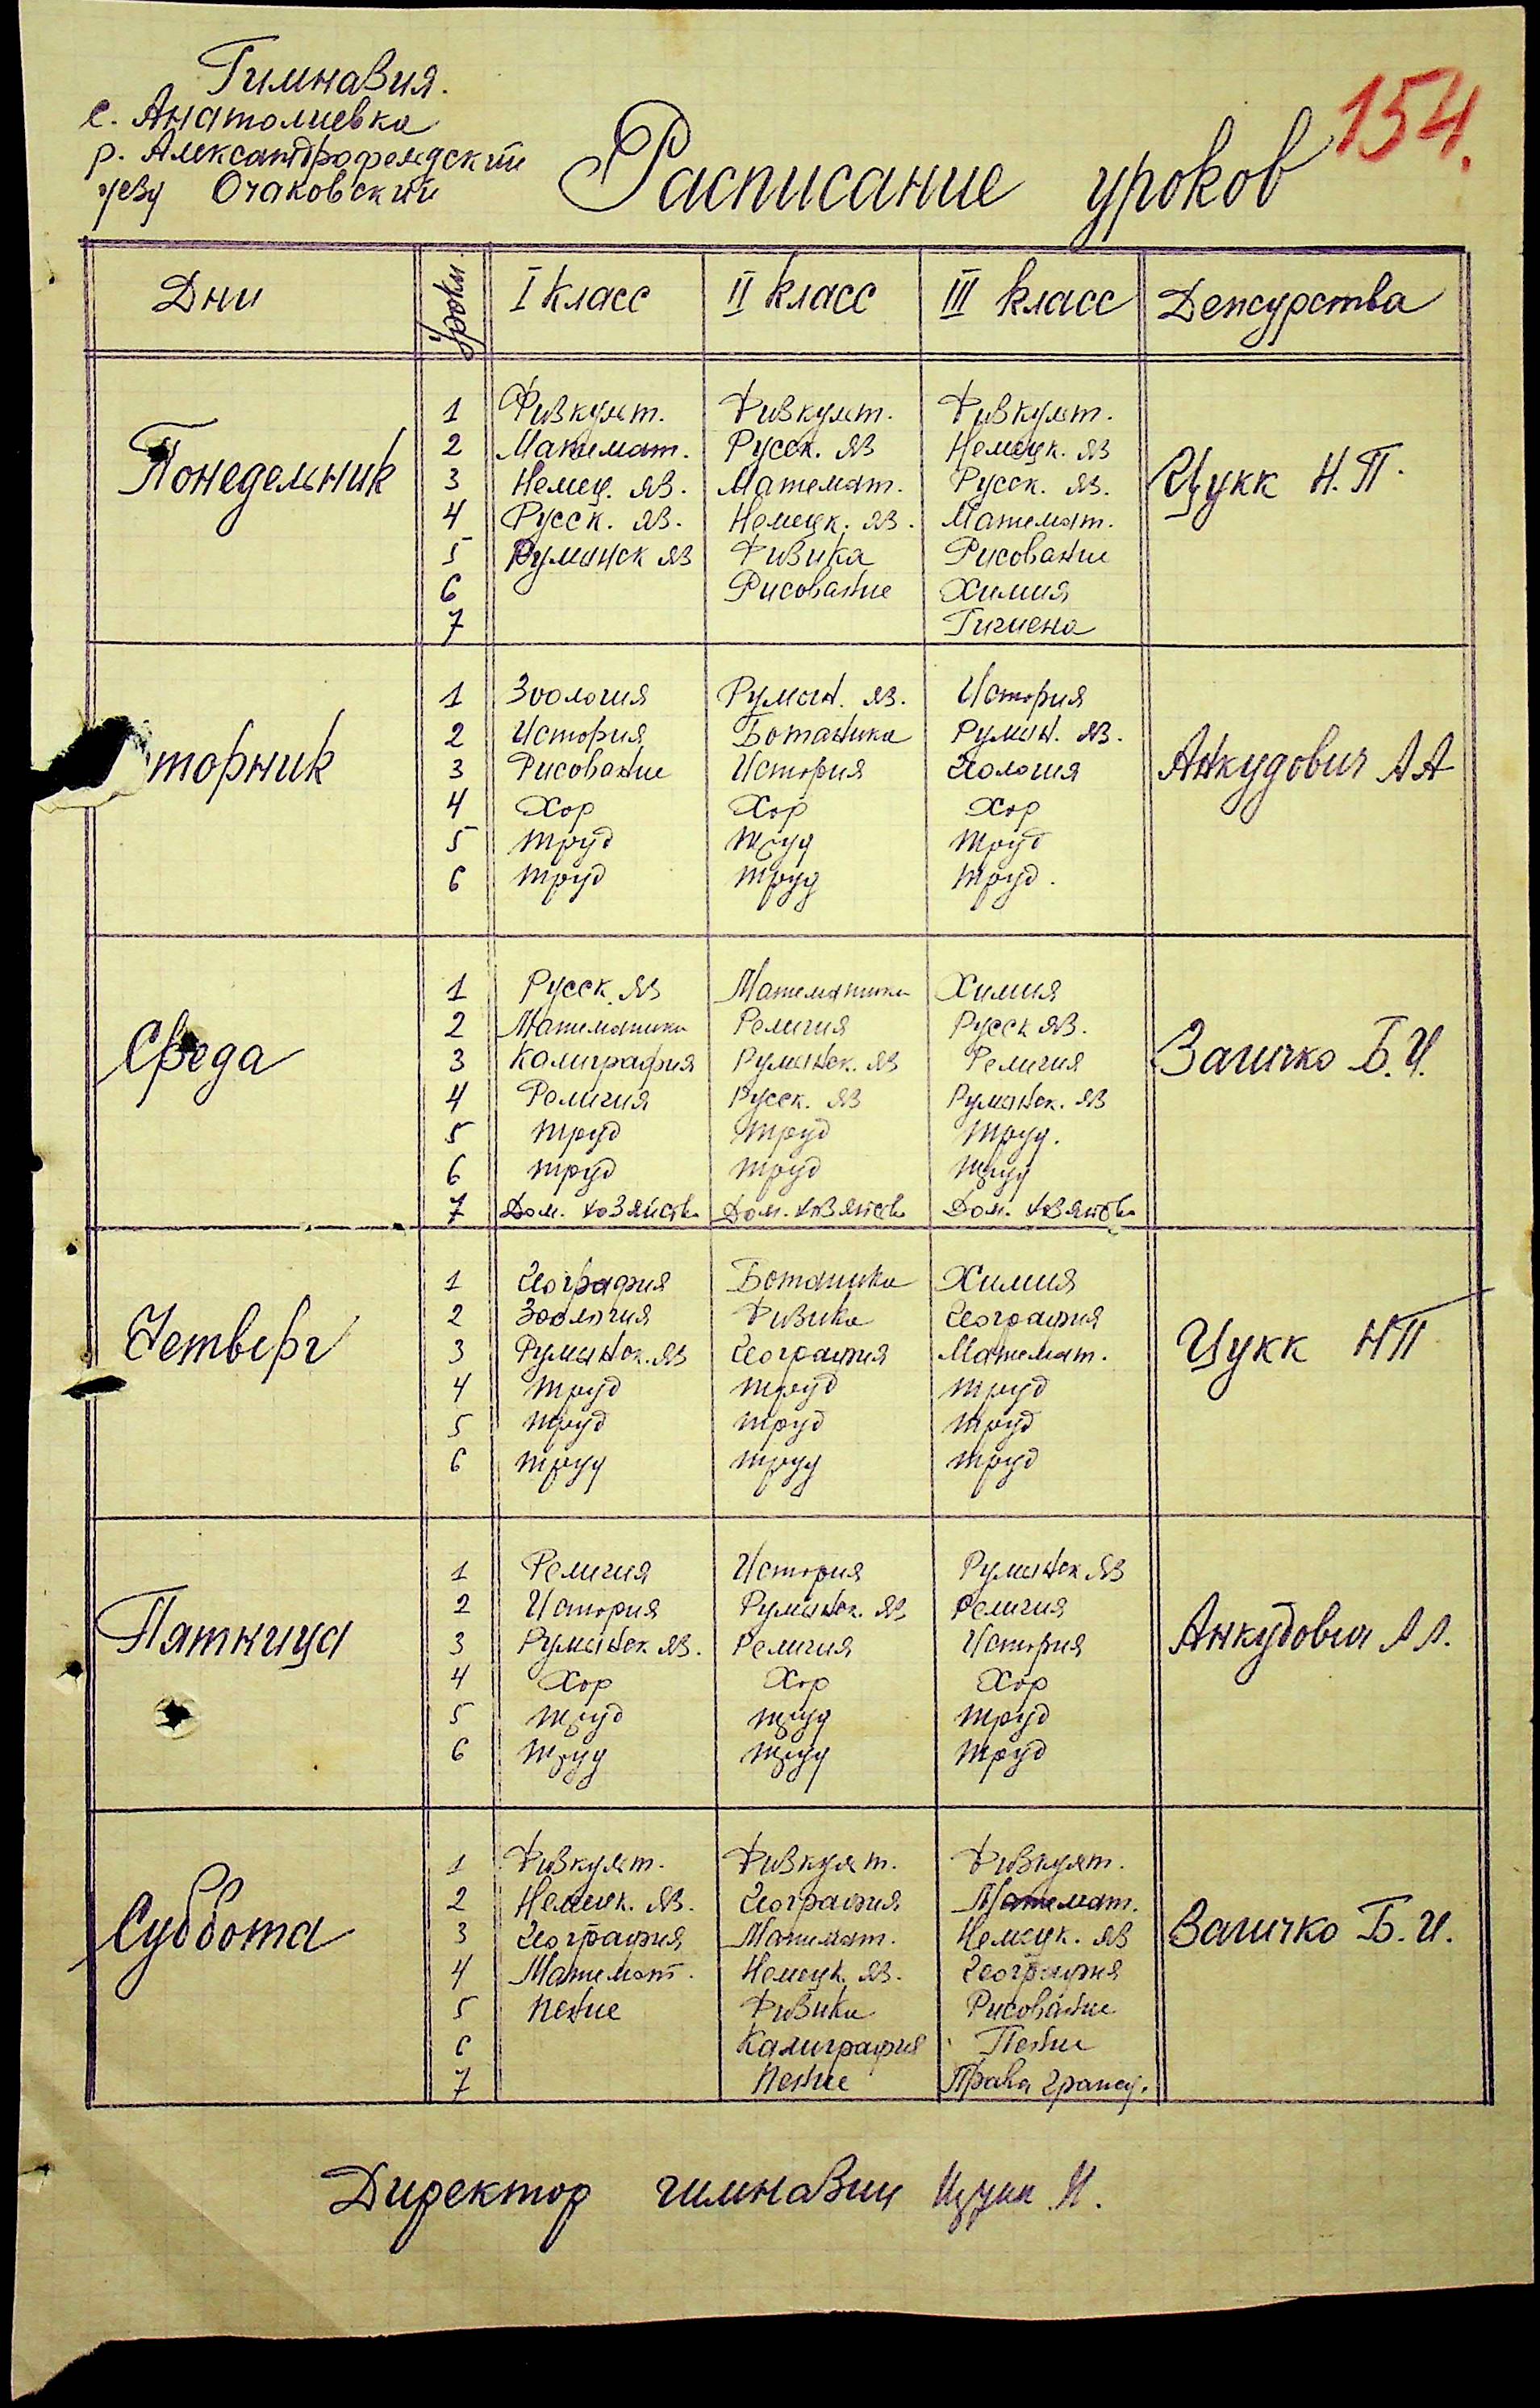 Гимназия.
с. Анатолиевка
р. Александрофельдский
уезд Очаковский
154.
Расписание уроков
Дни Уроки I класс II класс III класс Дежурства
Понедельник Цукк Н.П.
1 Физкульт. Физкульт. Физкульт.
2 Математ. Русск. яз Немецк. яз
3 Немец. яз. Математ. Русск. яз.
4 Русск. яз. Немецк. яз. Математ.
5 Румынск яз Физика Рисование
6 Рисование Химия
7 Гигиена
торник Анкудович А А
1 Зоология Румын. яз. История
2 История Ботаника Румын. яз.
3 Рисование История Геология
4 Хор Хор Хор
5 труд труд труд
6 труд труд труд.
Среда Загичко Б.И.
1 Русск. яз Математика Химия
2 Математика Религия Русск яз.
3 Калиграфия Румынск. яз Религия
4 Религия Русск. яз Румынск. яз
5 труд труд труд.
6 труд труд труд
7 Дом. хозяйств Дом. хозяйств Дом. хозяйств
Четверг Цукк НП
1 География Ботаника Химия
2 Зоология Физика География
3 Румынск. яз География Математ.
4 труд труд труд
5 труд труд труд
6 труд труд труд
Пятница Анкудович А А.
1 Религия История Румынск яз
2 История Румынск. яз Религия
3 Румынск яз. Религия История
4 Хор Хор Хор
5 труд труд труд
6 труд труд труд
Суббота Загичко Б.И.
1 Физкульт. Физкульт. Физкульт.
2 Немецк. яз. География Математ.
3 География Математ. Немецк. яз
4 Математ. Немецк. яз. География
5 пение Физика Рисование
6 Калиграфия Пение
7 Пение Права гражд.
Директор гимназии Цукк Н.